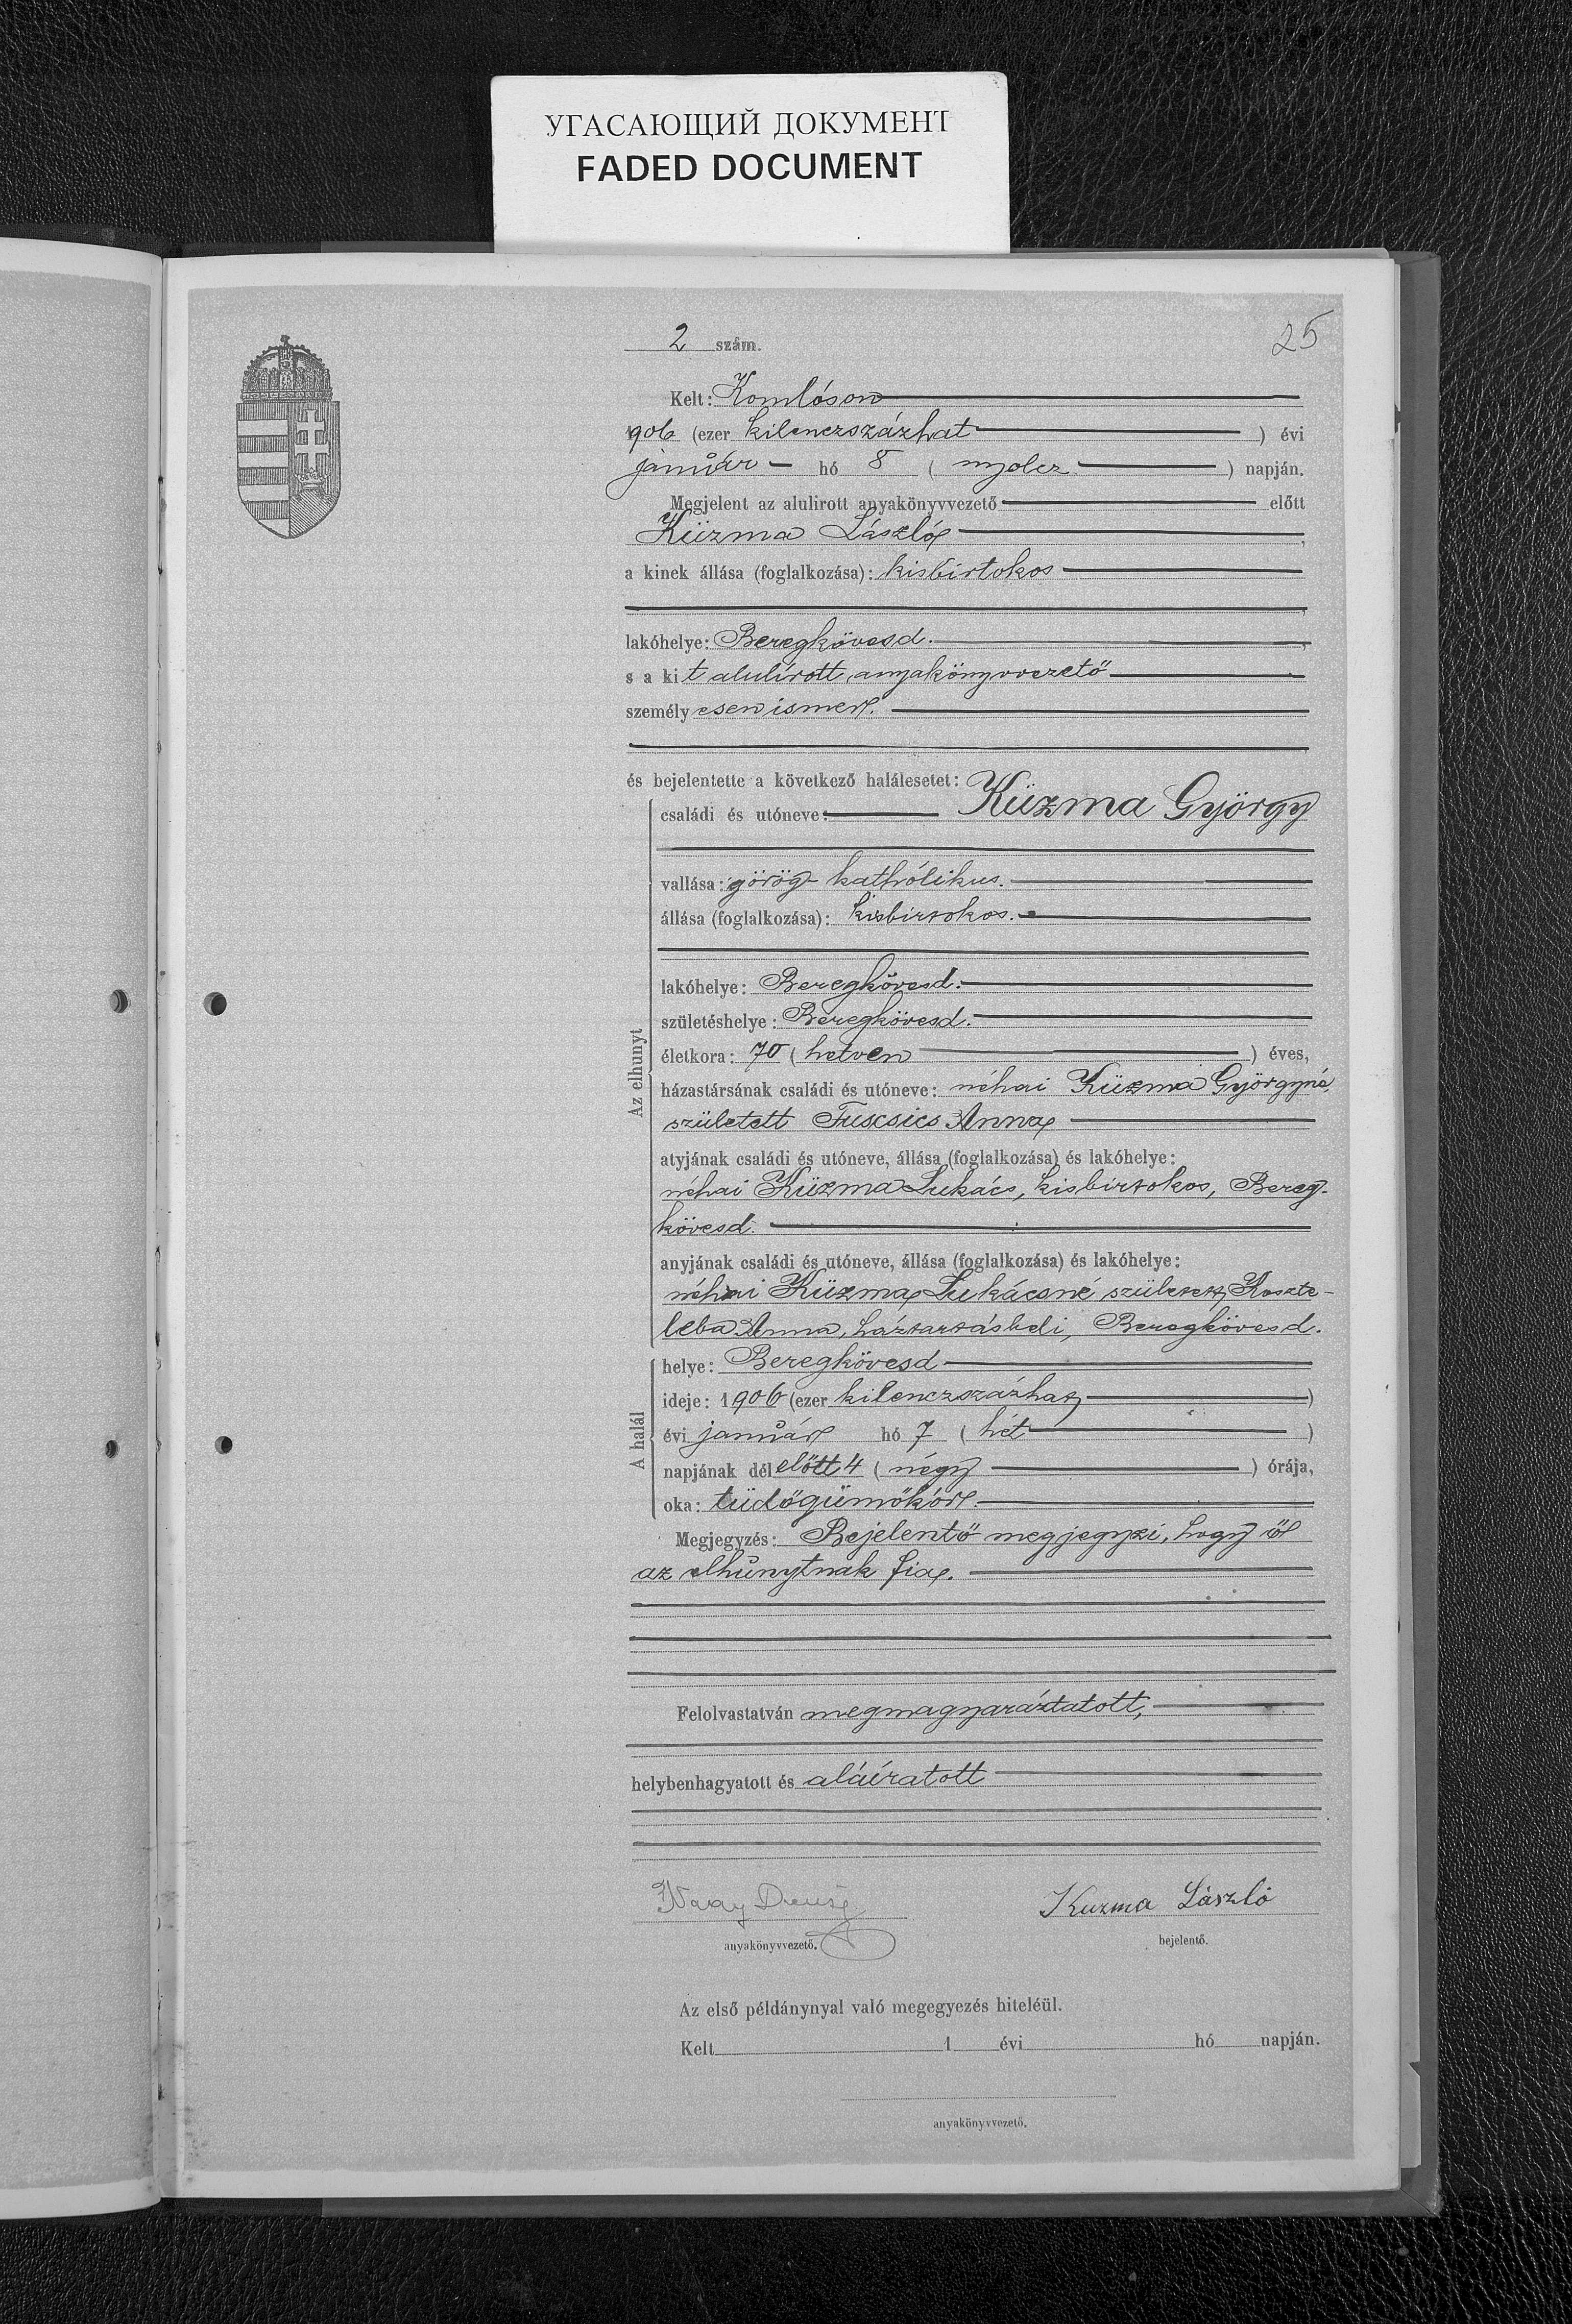 УГАСАЮЩИЙ ДОКУМЕНТ
FADED DOCUMENT
2 szám.
25
Kelt: Komlóson
1906 (ezer kilenczszázhat ) évi
január hó 8 ( nyolcz ) napján.
Megjelent az alulirott anyakönyvvezető előtt
Kŭzma László,
a kinek állása (foglalkozása): kisbirtokos
lakóhelye: Beregkövesd.
s a kit alulírott anyakönyvvezető
személyesen ismer.
és bejelentette a következő halálesetet:
családi és utóneve: Kŭzma György
vallása: görög katholikus.
állása (foglalkozása): kisbirtokos.
lakóhelye: Beregkövesd.
születéshelye: Beregkövesd.
életkora: 70 (hetven ) éves,
házastársának családi és utóneve: néhai Kŭzma Györgyné,
született Fuscsics Anna
atyjának családi és utóneve, állása (foglalkozása) és lakóhelye:
néhai Kŭzma Lukács, kisbirtokos, Bereg-
kövesd.
anyjának családi és utóneve, állása (foglalkozása) és lakóhelye:
néhai Kŭzma Lukácsné született Koszte-
leba Anna, háztartásbeli, Beregkövesd.
Az elhunyt
helye: Beregkövesd
ideje: 1906 (ezer kilenczszázhat )
évi január hó 7 ( hét )
napjának délelőtt 4 ( négy ) órája,
oka: tüdőgümőkór.
A halál
Megjegyzés: Bejelentő megjegyzi, hogy ő
az elhŭnytnak fia.
Felolvastatván megmagyaráztatott,
helybenhagyatott és aláíratott
Kuzma László
anyakönyvvezető.
bejelentő.
Az első példánynyal való megegyezés hiteléül.
Kelt 1 évi hó napján.
anyakönyvvezető.